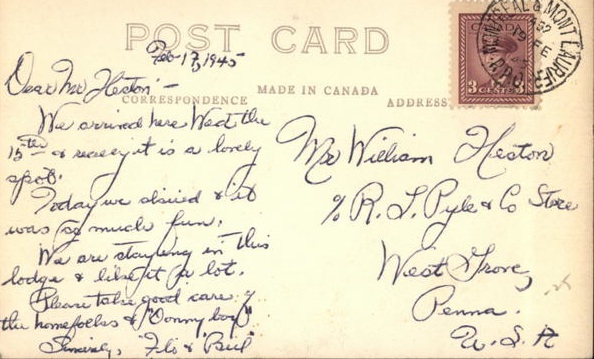 POST CARD
Feb-17, 1945
Dear Mr Heston -
CORRESPONDENCE
MADE IN CANADA
ADDRESS
We arrived here Wed the
15th & really it is a lovely
spot.
Today we skiied & it
was so much fun.
We are staying in this
lodge & like it a lot.
Please take good care of
the homefolks & "Donny boy"
Sincerely, "Flo & Paul"
CANADA
3 CENTS 3
MONTREAL & MONT LAURIER
R.P.O.
Mr William Heston
% R. L. Pyle & Co Store
West Grove,
Penna.
U.S.A